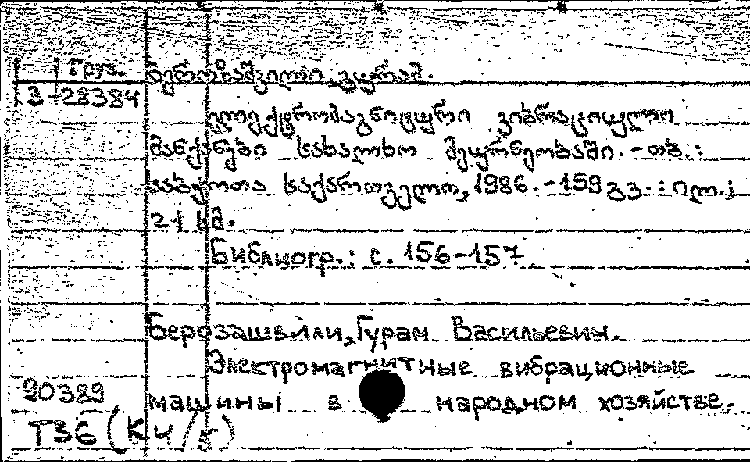 Груз.
3-28384
ბეროზაშვილი, გურამ.
ელექტრომაგნიტური ვიბრაციული
მანქანები სახალხო მეურნეობაში. - თბ. :
საბჭოთა საქართველო, 1986. - 159 გვ. : ილ. ;
21 სმ.
Библиогр.: с. 156-157
Берозашвили, Гурам Васильевич.
Электромагнитные вибрационные
машины в народном хозяйстве.
90389
Т36 (К4/5)